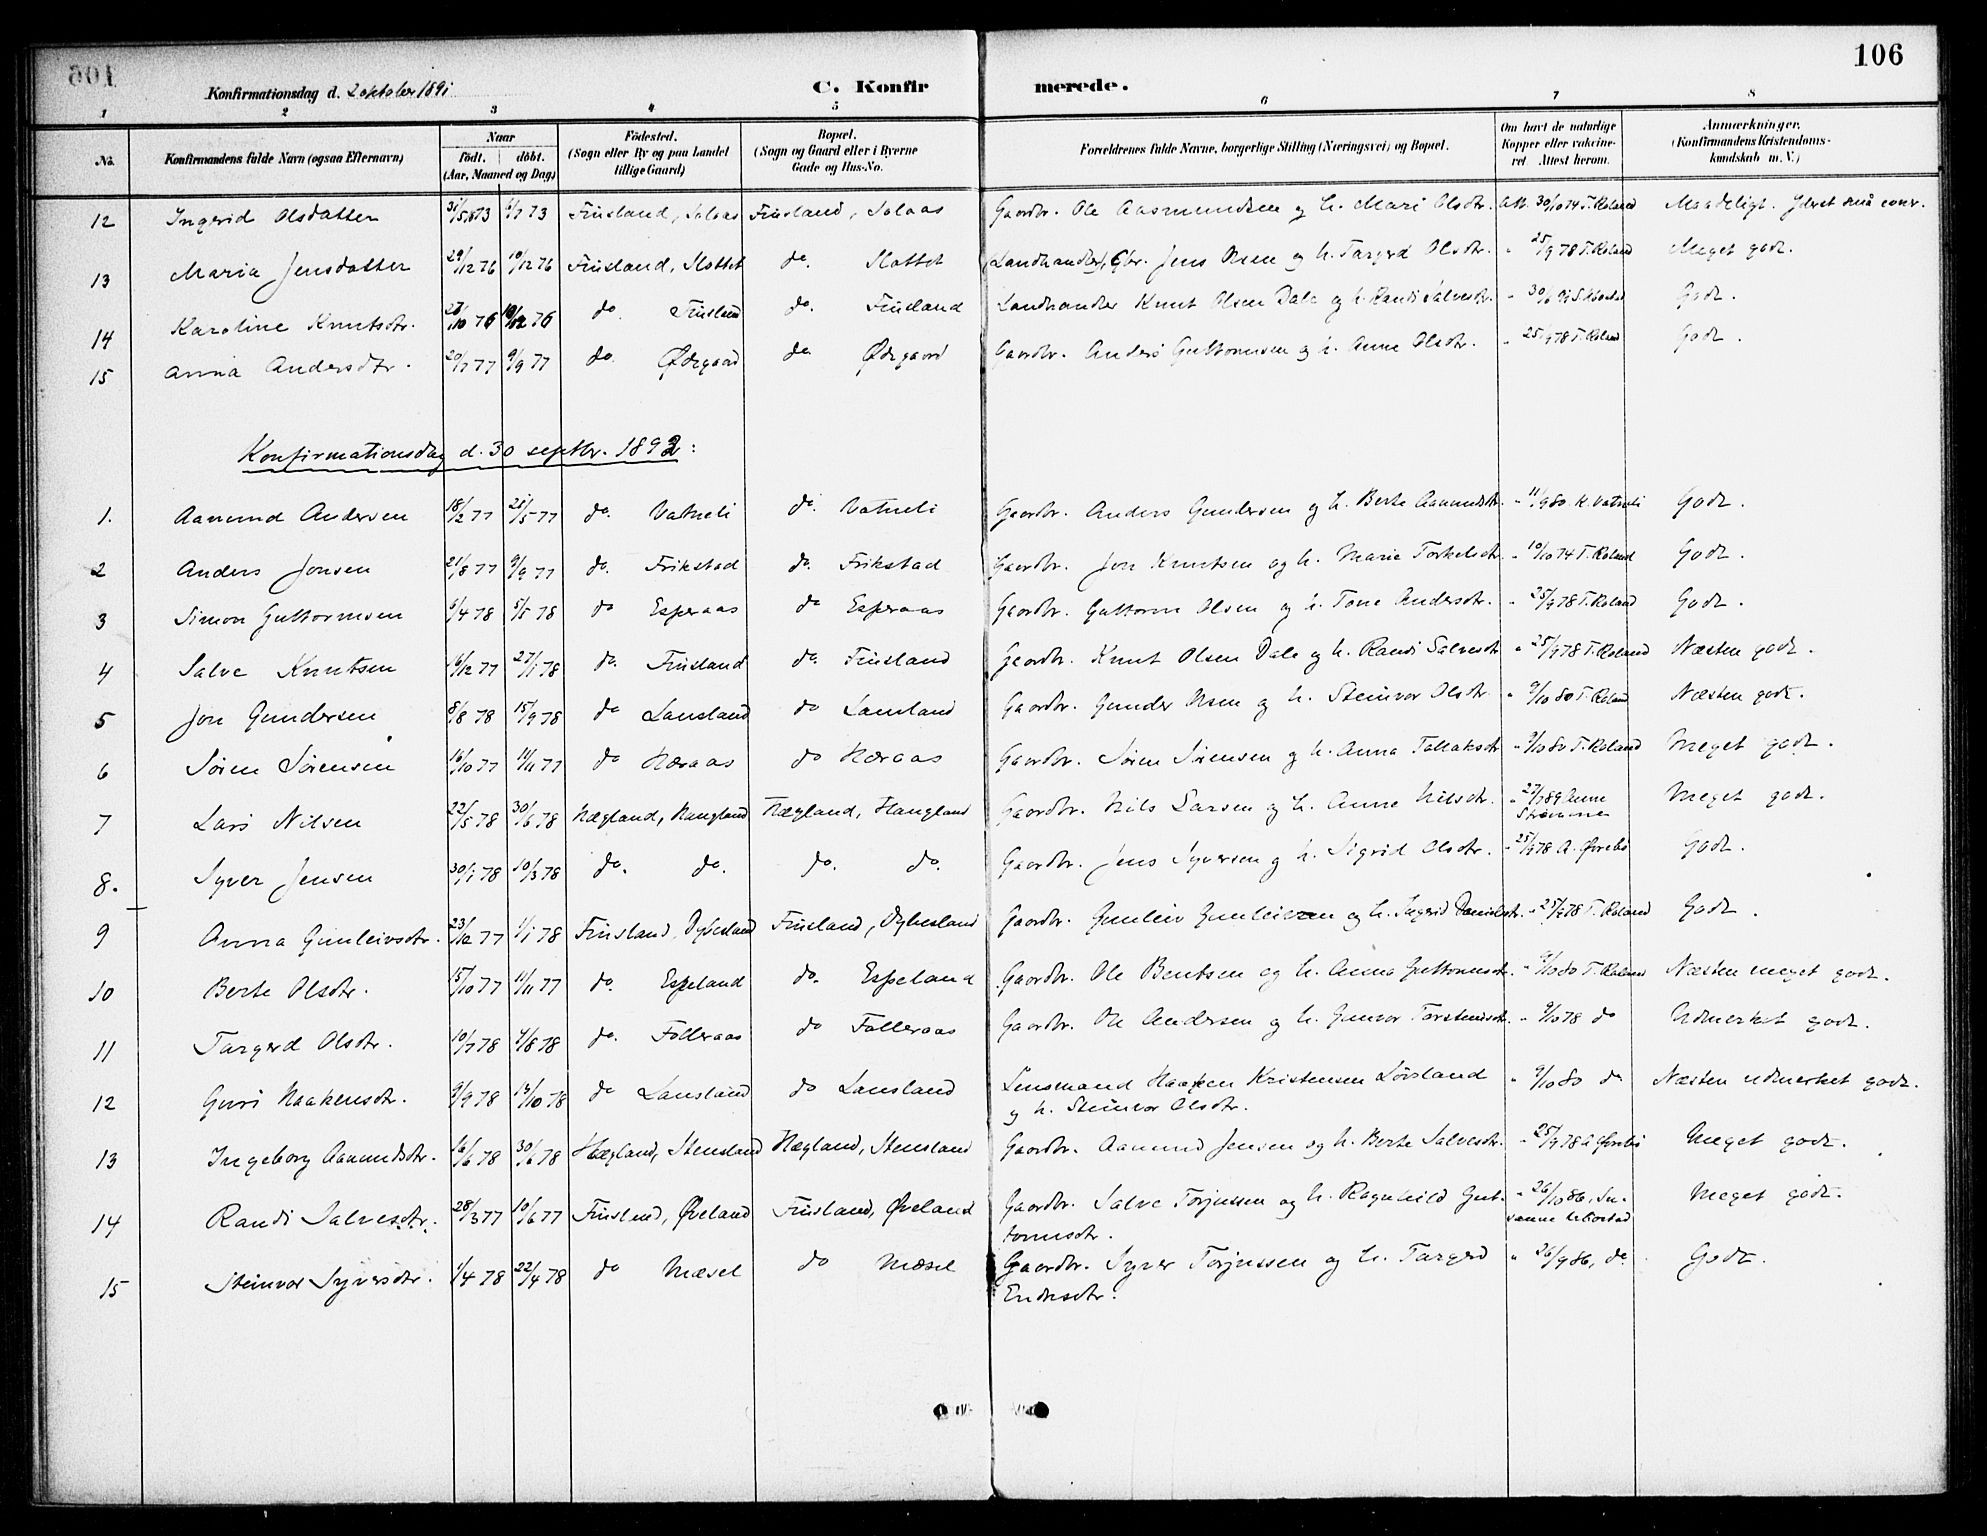 106
Konfirmationsdag d. 2 oktober 1891
C. Konfirmerede.
1 2 3 4 5 6 7 8
No. | Konfirmandens fulde Navn (ogsaa Efternavn) | Naar födt. döbt. (Aar, Maaned og Dag) | Födested. (Sogn eller By og paa Landet tillige Gaard) | Bopæl. (Sogn og Gaard eller i Byerne Gade og Hus-No. | Forældrenes fulde Navne, borgerlige Stilling (Næringsvei) og Bopæl. | Om havt de naturlige Kopper eller vakcineret. Attest herom. | Anmærkninger. (Konfirmandens Kristendomskundskab m. V.)
12 Ingerid Olsdatter 31/5 73 6/7 73 Finsland, Solaas Finsland, Solaas Gaardbr. Ole Aasmundsen og h. Mari Olsdtr. Att. 30/10 74 T. Roland Maadeligt.
13 Maria Jensdatter 29/12 76 10/12 76 Finsland, Slottet do. Slottet Landhandler, Gbr. Jens Olsen og h. Targerd Olsdtr. " 25/9 78 T. Roland Meget godt.
14 Karoline Knutsdtr. 28/10 76 10/12 76 do. Finsland do. Finsland Landhandler Knut Olsen Dale og h. Randi Salvesdtr. " Godt.
15 Anna Andersdtr. 20/7 77 9/9 77 do. Ødegaard do. Ødegaard Gaardbr. Anders Guttormsen og h. Anne Olsdtr. " 25/9 78 T. Roland Godt.
Konfirmationsdag d. 30 septbr. 1892:
1. Aanund Andersen 18/2 77 21/5 77 do. Vatneli do. Vatneli Gaardbr. Anders Gundersen og h. Berte Aanundsdtr. " 11/9 80. K. Vatneli Godt.
2 Anders Jonsen 21/8 77 9/9 77 do. Frikstad do. Frikstad Gaardbr. Jon Knutsen og h. Marie Torkelsdtr. " 10/10 74 T. Roland Godt.
3 Simon Guttormsen 6/4 78 5/5 78 do Esperaas do Esperaas Gaardbr. Guttorm Olsen og h. Tone Andersdtr. " 25/9 78 T. Roland Godt.
4 Salve Knutsen 16/12 77 27/1 78 do. Finsland do. Finsland Gaardbr. Knut Olsen Dale og h. Randi Salvesdtr " 25/9 78 T. Roland Næsten godt.
5 Jon Gundersen 8/8 78 15/9 78 do Lansland do Lansland Gaardbr. Gunder Olsen og h. Steinvor Olsdtr. " 9/10 80 T. Roland Næsten godt.
6 Søren Sørensen 16/10 77 11/11 77 do Høraas do Høraas Gaardbr. Søren Sørensen og h. Anna Tallaksdtr " 9/10 80 T. Roland Meget godt.
7 Lars Nilsen 22/5 78 30/6 78 Hægland, Haugland Hægland, Haugland Gaardbr. Nils Larsen og h. Anne Nilsdtr. " Anne Strømme Meget godt.
8. Syver Jensen 30/1 78 10/3 78 do. do. do. do. Gaardbr. Jens Syversen og h. Sigrid Olsdtr. " 25/9 78 A. Øvrebø Godt.
9 Anna Gunleivsdtr. 23/12 77 1/1 78 Finsland, Dybesland Finsland, Dybesland Gaardbr. Gunleiv Gunleivsen og h. Ingrid Danielsdtr. " 25/9 78 T. Roland Godt.
10 Berte Olsdtr. 15/10 77 11/11 77 do. Espeland do. Espeland Gaardbr. Ole Bentsen og h. Anna Guttormsdtr. " 9/10 80 T. Roland Næsten meget godt.
11 Targerd Olsdtr. 10/7 78 4/8 78 do. Folleraas do Folleraas Gaardbr. Ole Andersen og h. Gunvor Torstensdtr. " 9/10 78 do Udmerket godt.
12 Guri Haakensdtr. 9/9 78 13/10 78 do Lansland do Lansland Lensmand Haaken Kristensen Løvland " 9/10 80 do Næsten udmerket godt.
og h. Steinvor Olsdtr.
13 Ingeborg Aanundsdtr. 16/6 78 30/6 78 Hægland, Stensland Hægland, Stensland Gaardbr. Aanund Jensen og h. Berte Salvesdtr. " 25/9 78 A. Øvrebø Meget godt.
14 Randi Salvesdtr. 28/3 77 10/6 77 Finsland, Øveland Finsland, Øveland Gaardbr. Salve Torjussen og h. Ragnhild Gut- " 26/10 86, Su-
tormsdtr. sanne Ubostad Meget godt.
15 Steinvor Syversdtr. 1/4 78 22/4 78 do Mæsel do Mæsel Gaardbr. Syver Torjussen og h. Targerd " 26/9 86, do Godt.
Endresdtr.